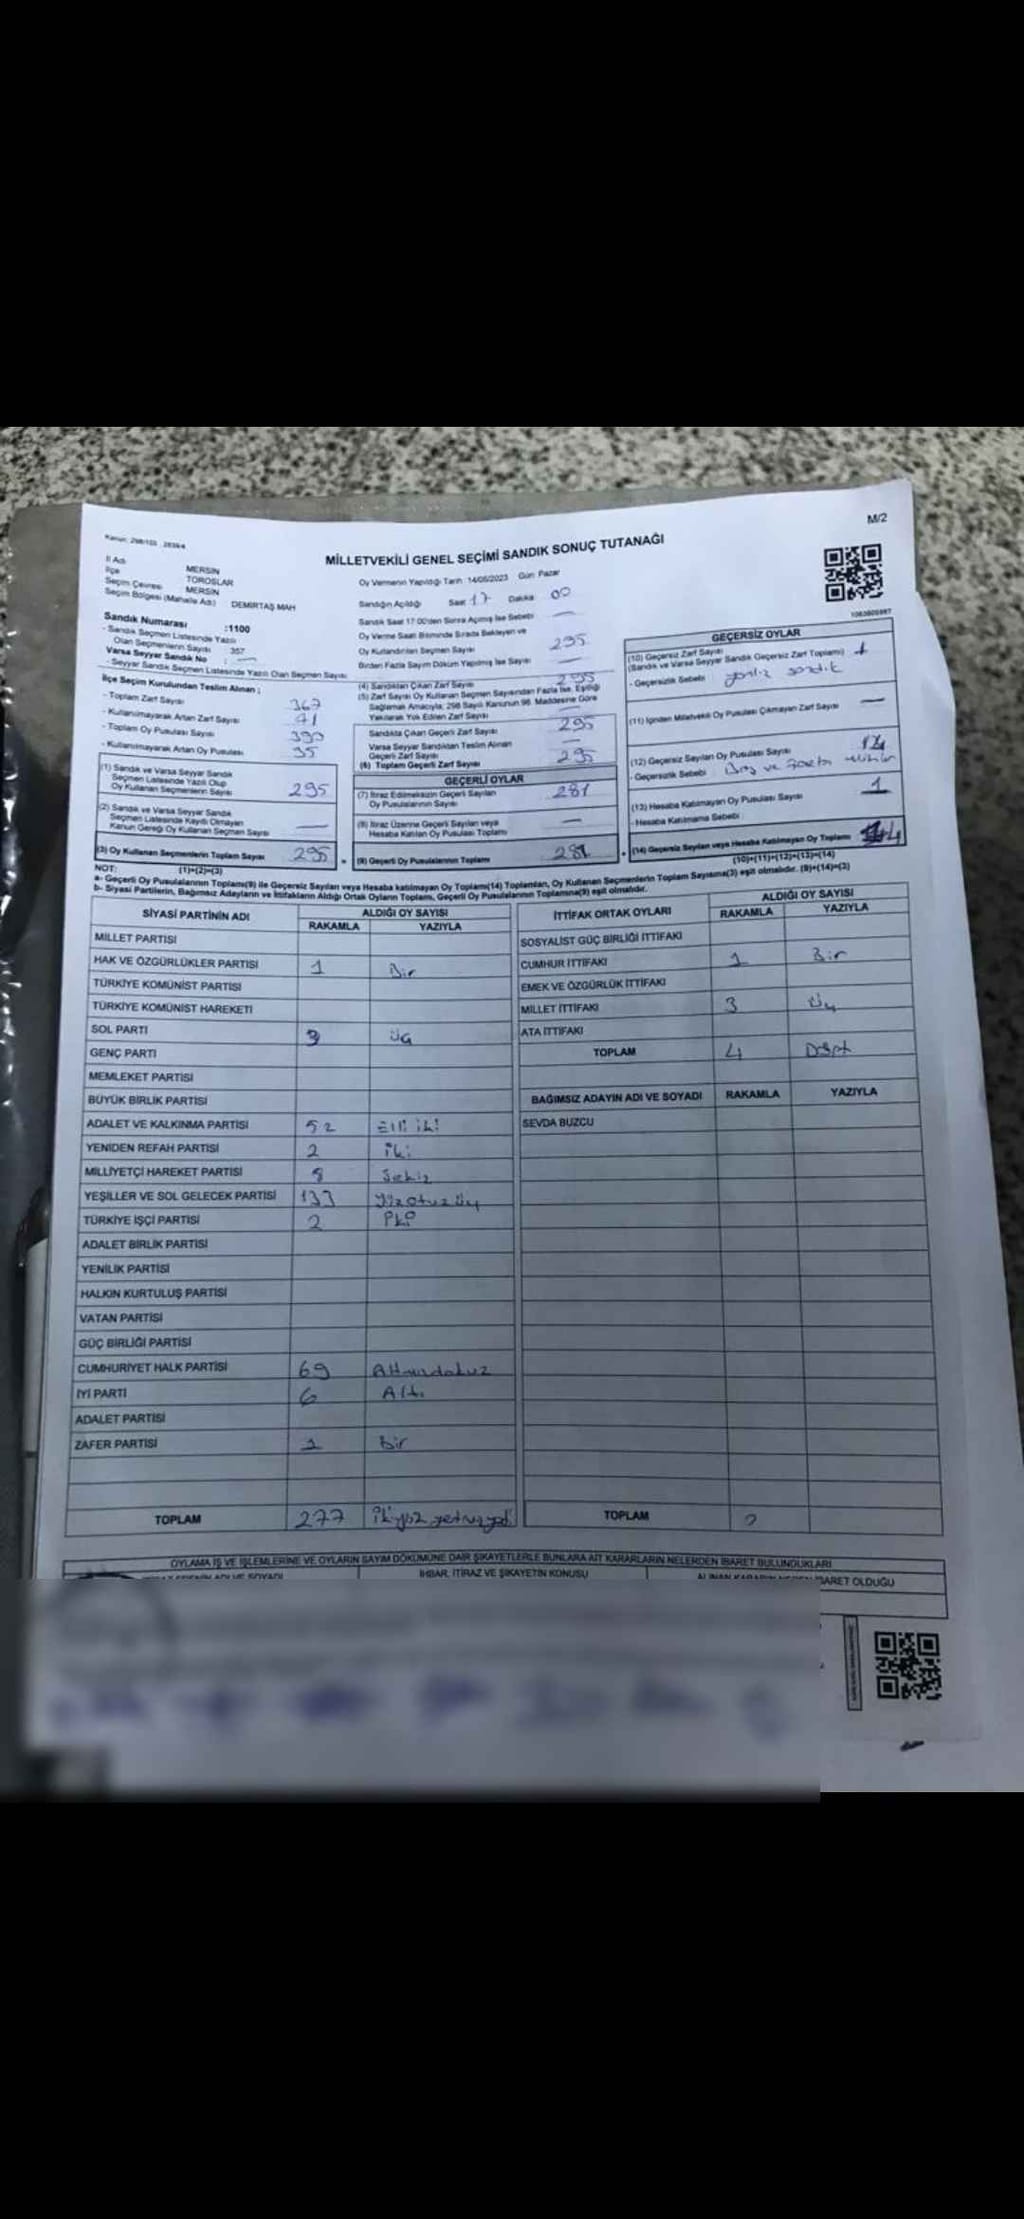 M/2
Kanun: 298/105
MİLLETVEKİLİ GENEL SEÇİMİ SANDIK SONUÇ TUTANAĞI
İl Adı MERSİN
İlçe TOROSLAR
Seçim Çevresi MERSİN
Seçim Bölgesi (Mahalle Adı) DEMİRTAŞ MAH
Oy Vermenin Yapıldığı Tarih 14/05/2023 Gün Pazar
Sandığın Açıldığı Saat 17 Dakika 00
Sandık Saat 17:00'den Sonra Açılmış İse Sebebi —
Oy Verme Saati Bitiminde Sırada Bekleyen ve
Oy Kullandırılan Seçmen Sayısı 295
Birden Fazla Sayım Döküm Yapılmış İse Sayısı —
Sandık Numarası :1100
- Sandık Seçmen Listesinde Yazılı
Olan Seçmenlerin Sayısı 357
Varsa Seyyar Sandık No : —
- Seyyar Sandık Seçmen Listesinde Yazılı Olan Seçmen Sayısı
İlçe Seçim Kurulundan Teslim Alınan ;
- Toplam Zarf Sayısı 367
- Kullanılmayarak Artan Zarf Sayısı 71
- Toplam Oy Pusulası Sayısı 390
- Kullanılmayarak Artan Oy Pusulası 35
(1) Sandık ve Varsa Seyyar Sandık
Seçmen Listesinde Yazılı Olup
Oy Kullanan Seçmenlerin Sayısı 295
(2) Sandık ve Varsa Seyyar Sandık
Seçmen Listesinde Kayıtlı Olmayan
Kanun Gereği Oy Kullanan Seçmen Sayısı —
(3) Oy Kullanan Seçmenlerin Toplam Sayısı 295
(1)+(2)=(3)
(4) Sandıktan Çıkan Zarf Sayısı 295
(5) Zarf Sayısı Oy Kullanan Seçmen Sayısından Fazla İse, Eşitliği
Sağlamak Amacıyla; 298 Sayılı Kanunun 98. Maddesine Göre
Yakılarak Yok Edilen Zarf Sayısı —
Sandıkta Çıkan Geçerli Zarf Sayısı 295
Varsa Seyyar Sandıktan Teslim Alınan
Geçerli Zarf Sayısı —
(6) Toplam Geçerli Zarf Sayısı 295
GEÇERLİ OYLAR
(7) İtiraz Edilmeksizin Geçerli Sayılan
Oy Pusulalarının Sayısı 281
(8) İtiraz Üzerine Geçerli Sayılan veya
Hesaba Katılan Oy Pusulası Toplamı —
(9) Geçerli Oy Pusulalarının Toplamı 281
GEÇERSİZ OYLAR
(10) Geçersiz Zarf Sayısı
(Sandık ve Varsa Seyyar Sandık Geçersiz Zarf Toplamı)
- Geçersizlik Sebebi
(11) İçinden Milletvekili Oy Pusulası Çıkmayan Zarf Sayısı —
(12) Geçersiz Sayılan Oy Pusulası Sayısı
- Geçersizlik Sebebi
(13) Hesaba Katılmayan Oy Pusulası Sayısı 1
- Hesaba Katılmama Sebebi
(14) Geçersiz Sayılan veya Hesaba Katılmayan Oy Toplamı
(10)+(11)+(12)+(13)=(14)
NOT:
a- Geçerli Oy Pusulalarının Toplamı(9) ile Geçersiz Sayılan veya Hesaba katılmayan Oy Toplamı(14) Toplamları, Oy Kullanan Seçmenlerin Toplam Sayısına(3) eşit olmalıdır. (9)+(14)=(3)
b- Siyasi Partilerin, Bağımsız Adayların ve İttifakların Aldığı Ortak Oyların Toplamı, Geçerli Oy Pusulalarının Toplamına(9) eşit olmalıdır.
SİYASİ PARTİNİN ADI ALDIĞI OY SAYISI
RAKAMLA YAZIYLA
MİLLET PARTİSİ
HAK VE ÖZGÜRLÜKLER PARTİSİ 1 Bir
TÜRKİYE KOMÜNİST PARTİSİ
TÜRKİYE KOMÜNİST HAREKETİ
SOL PARTİ 3 üç
GENÇ PARTİ
MEMLEKET PARTİSİ
BÜYÜK BİRLİK PARTİSİ
ADALET VE KALKINMA PARTİSİ 52 Elli iki
YENİDEN REFAH PARTİSİ 2 iki
MİLLİYETÇİ HAREKET PARTİSİ 8 Sekiz
YEŞİLLER VE SOL GELECEK PARTİSİ 133 yüzotuzüç
TÜRKİYE İŞÇİ PARTİSİ 2 iki
ADALET BİRLİK PARTİSİ
YENİLİK PARTİSİ
HALKIN KURTULUŞ PARTİSİ
VATAN PARTİSİ
GÜÇ BİRLİĞİ PARTİSİ
CUMHURİYET HALK PARTİSİ 69 Altmışdokuz
İYİ PARTİ 6 Altı
ADALET PARTİSİ
ZAFER PARTİSİ 1 bir
TOPLAM 277 ikiyüz yetmişyedi
İTTİFAK ORTAK OYLARI ALDIĞI OY SAYISI
RAKAMLA YAZIYLA
SOSYALİST GÜÇ BİRLİĞİ İTTİFAKI
CUMHUR İTTİFAKI 1 Bir
EMEK VE ÖZGÜRLÜK İTTİFAKI
MİLLET İTTİFAKI 3 Üç
ATA İTTİFAKI
TOPLAM 4 Dört
BAĞIMSIZ ADAYIN ADI VE SOYADI RAKAMLA YAZIYLA
SEVDA BUZCU
TOPLAM 0
OYLAMA İŞ VE İŞLEMLERİNE VE OYLARIN SAYIM DÖKÜMÜNE DAİR ŞİKAYETLERLE BUNLARA AİT KARARLARIN NELERDEN İBARET BULUNDUKLARI
İHBAR, İTİRAZ VE ŞİKAYETİN KONUSU
İBARET OLDUĞU